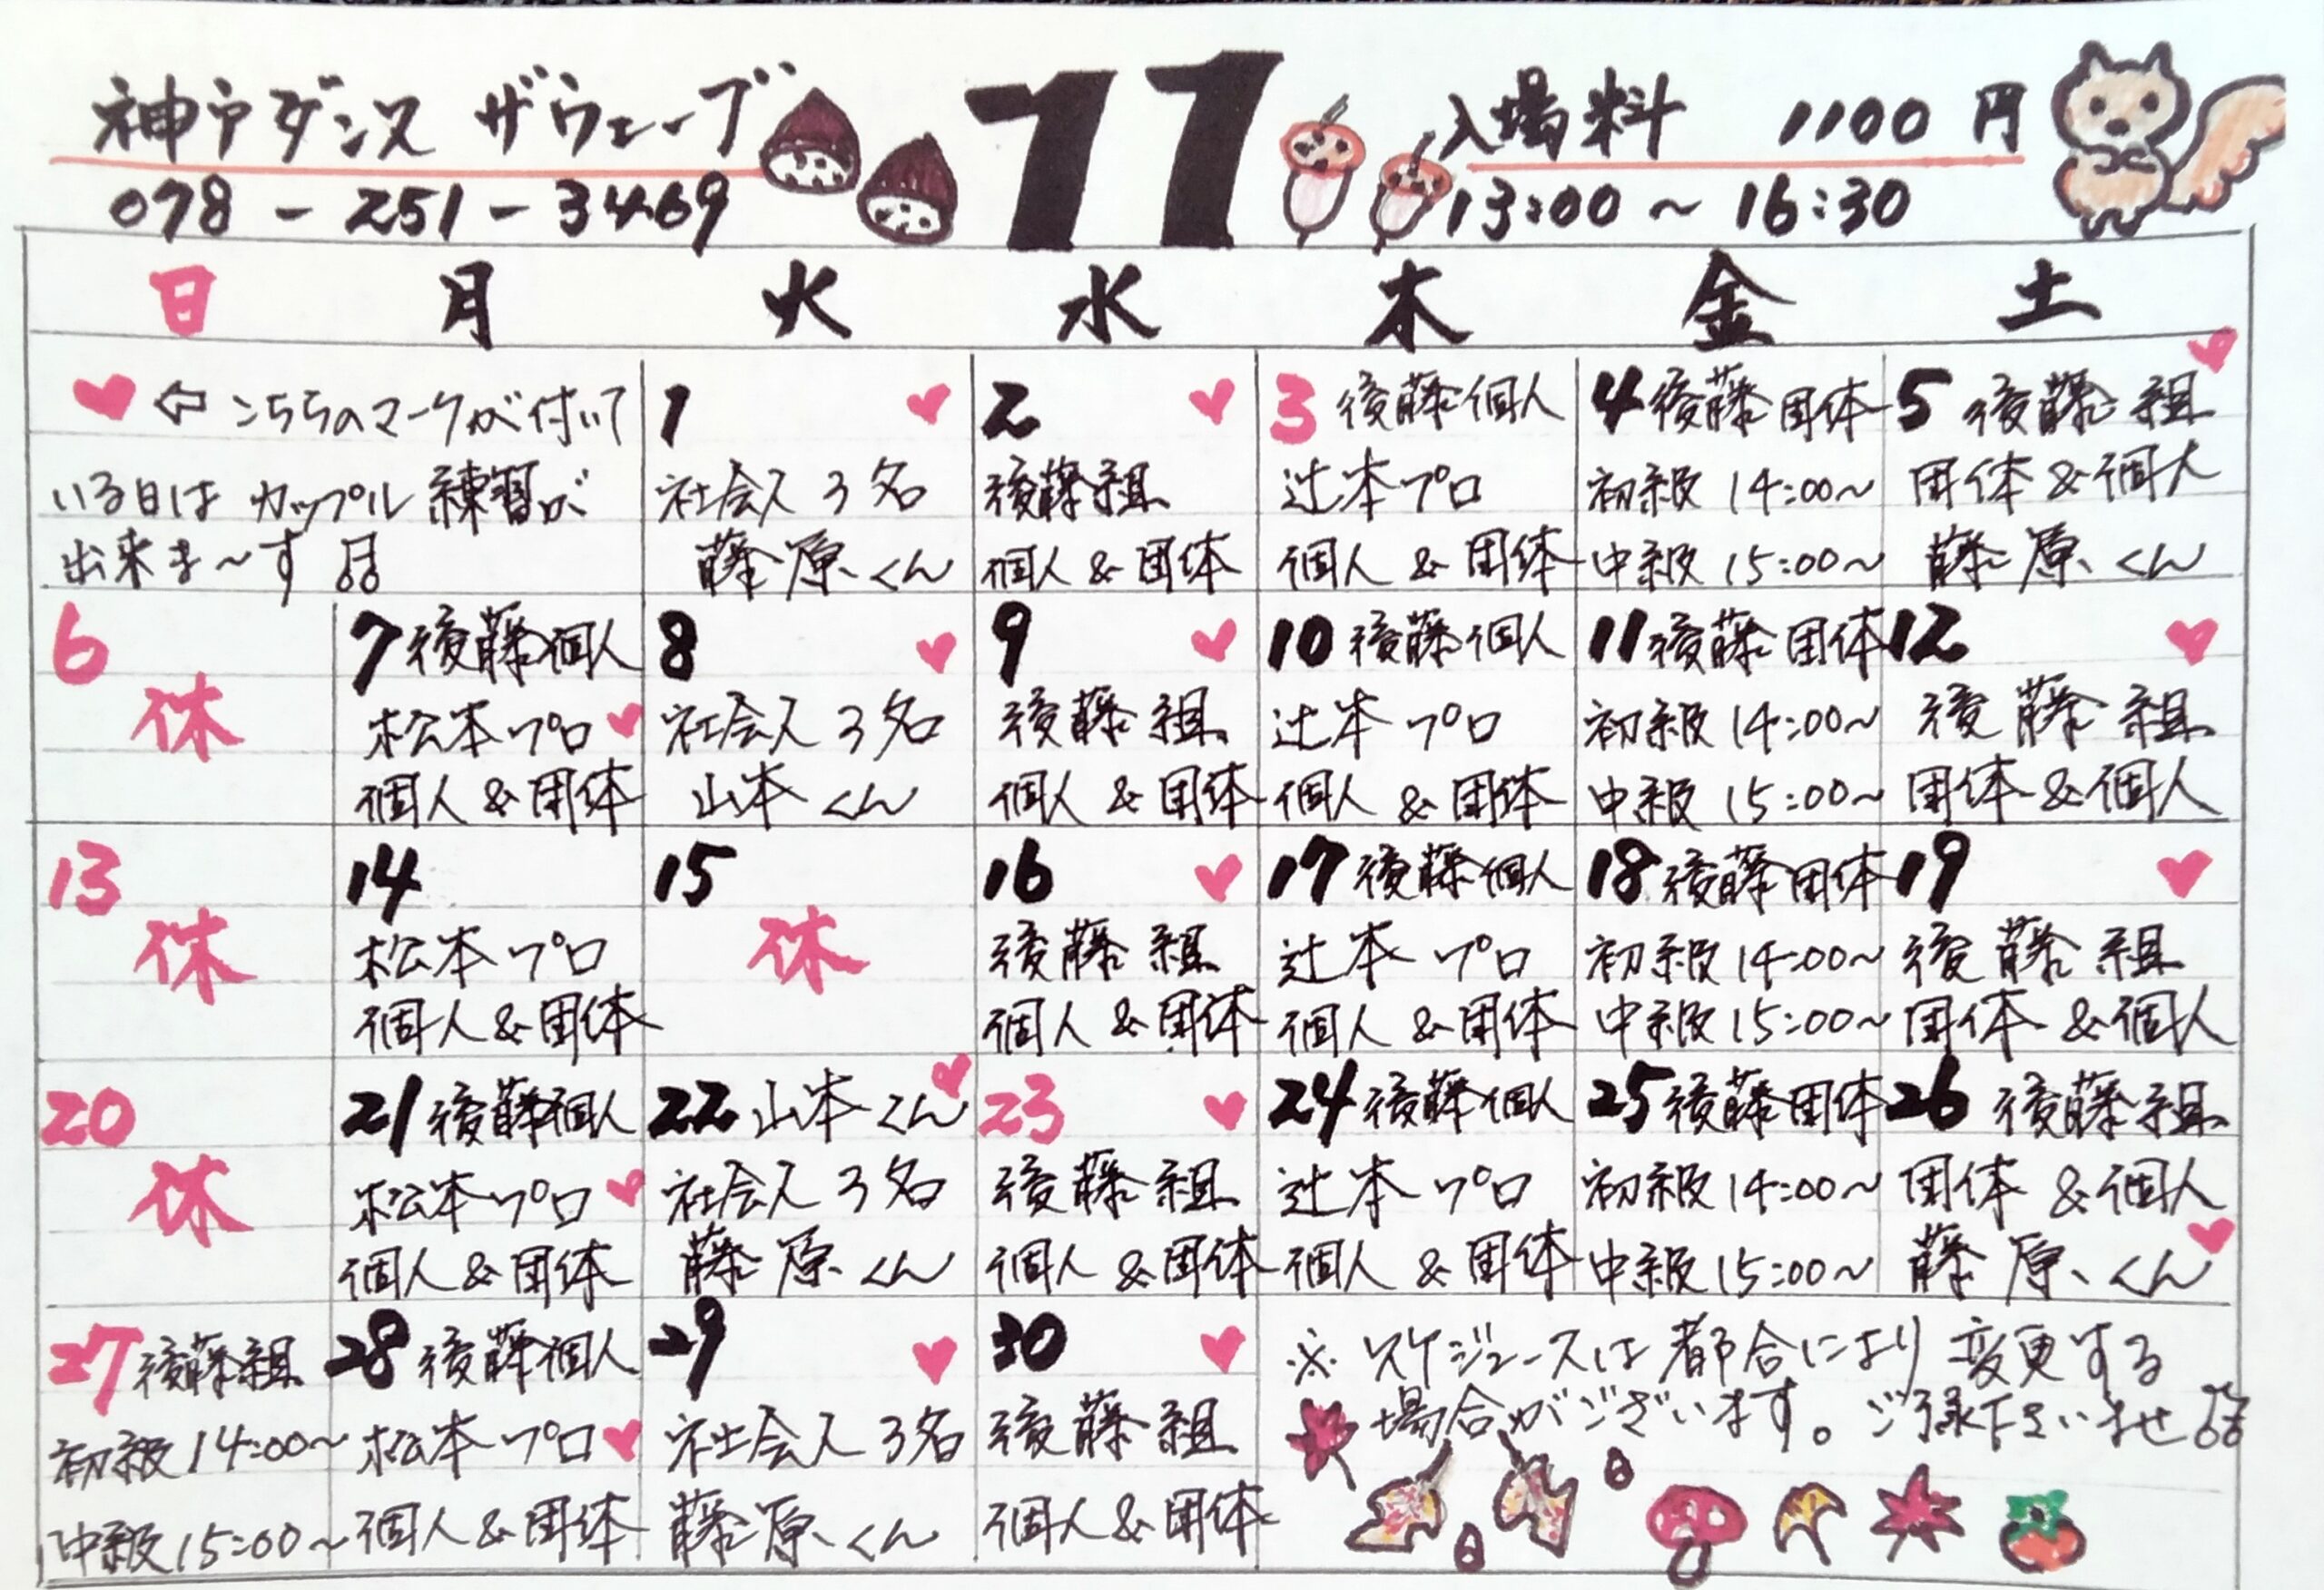 神戸ダンス ザウェーブ
078-251-3469
11
入場料 1100円
13:00～16:30
日 月 火 水 木 金 土
♥ ⇦ こちらのマークが付いて
いる日は カップル 練習が
出来ま～す
1 ♥
社会人 3名
藤原くん
2 ♥
後藤組
個人&団体
3 後藤個人
辻本プロ
個人&団体
4 後藤団体
初級 14:00～
中級 15:00～
5 後藤組 ♥
団体&個人
藤原くん
6
休
7 後藤個人
松本プロ ♥
個人&団体
8 ♥
社会人 3名
山本くん
9 ♥
後藤組
個人&団体
10 後藤個人
辻本プロ
個人&団体
11 後藤団体
初級 14:00～
中級 15:00～
12 ♥
後藤組
団体&個人
13
休
14
松本プロ
個人&団体
15
休
16 ♥
後藤組
個人&団体
17 後藤個人
辻本プロ
個人&団体
18 後藤団体
初級 14:00～
中級 15:00～
19 ♥
後藤組
団体&個人
20
休
21 後藤個人
松本プロ ♥
個人&団体
22 山本くん ♥
社会人 3名
藤原くん
23 ♥
後藤組
個人&団体
24 後藤個人
辻本プロ
個人&団体
25 後藤団体
初級 14:00～
中級 15:00～
26 後藤組
団体&個人
藤原くん ♥
27 後藤組
初級 14:00～
中級 15:00～
28 後藤個人
松本プロ ♥
個人&団体
29 ♥
社会人 3名
藤原くん
30 ♥
後藤組
個人&団体
※ スケジュースは都合により変更する
場合がございます。ご了承下さいませ